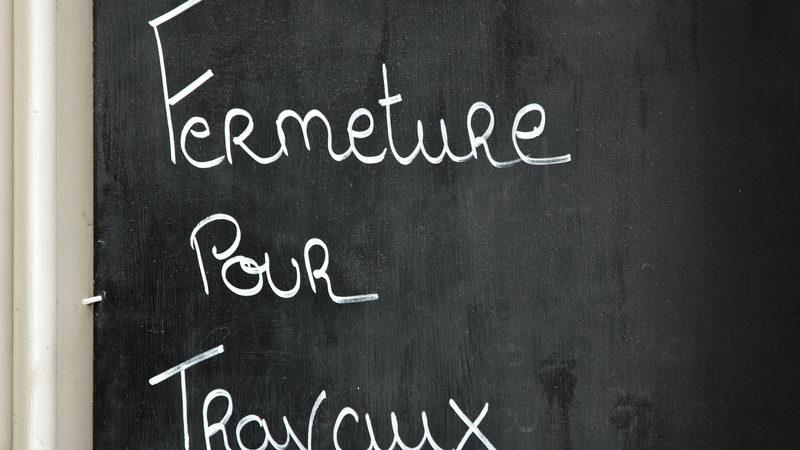 Fermeture
Pour
Travaux